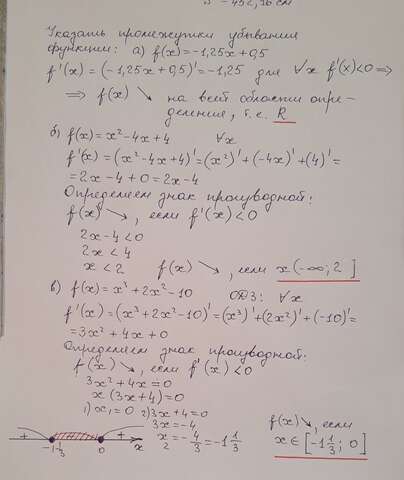 Указать промежутки убывания
функции: а) f(x)=-1,25x+0,5
f'(x)=(-1,25x+0,5)'=-1,25 для ∀x f'(x)<0 ⇒
⇒ f(x) ↘ на всей области опре-
деления, т.е. R
б) f(x)=x²-4x+4 ∀x
f'(x)=(x²-4x+4)'=(x²)'+(-4x)'+(4)'=
=2x-4+0=2x-4
Определяем знак производной:
f(x) ↘, если f'(x)<0
2x-4<0
2x<4
x<2 f(x) ↘, если x(-∞; 2]
в) f(x)=x³+2x²-10 ОДЗ: ∀x
f'(x)=(x³+2x²-10)'=(x³)'+(2x²)'+(-10)'=
=3x²+4x+0
Определяем знак производной:
f(x) ↘, если f'(x)<0
3x²+4x=0
x(3x+4)=0
1) x₁=0 2) 3x+4=0
3x=-4
x₂=-4/3=-1 1/3
f(x) ↘, если
x∈[-1 1/3; 0]
+ - 1 1/3 0 + x